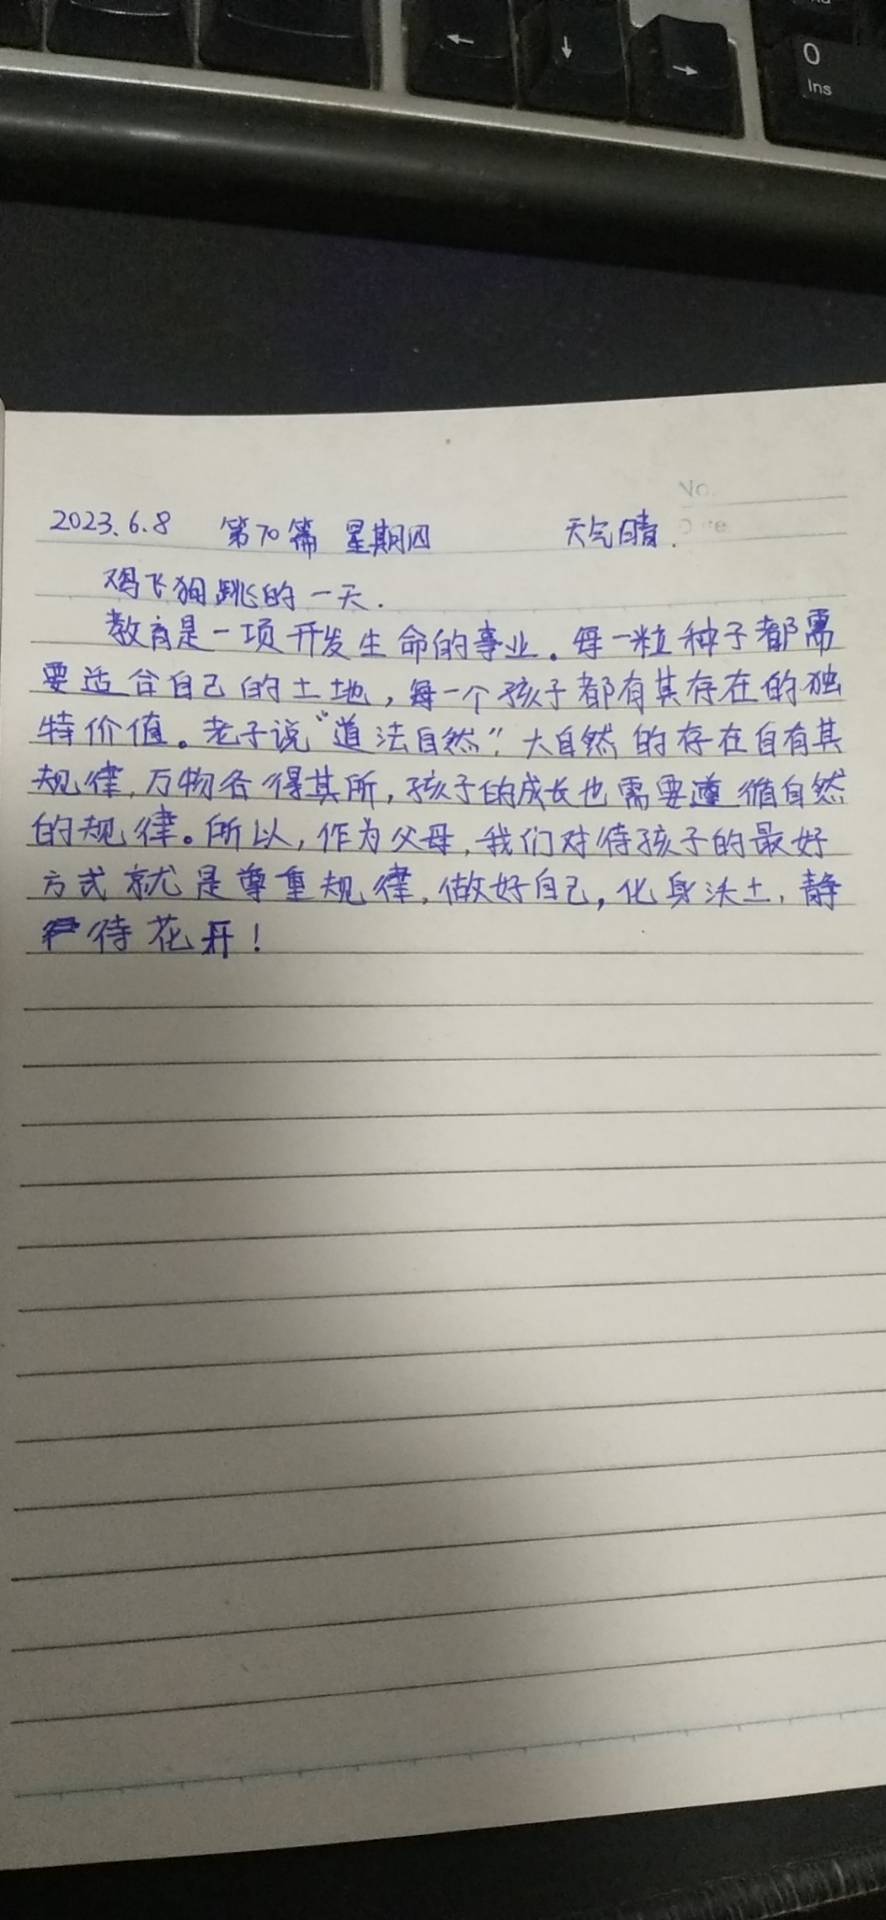 ←
↓
→
0
Ins
No.
2023.6.8 第70篇 星期四 天气晴.
鸡飞狗跳的一天.
教育是一项开发生命的事业。每一粒种子都需
要适合自己的土地，每一个孩子都有其存在的独
特价值。老子说"道法自然"：大自然的存在自有其
规律，万物各得其所，孩子的成长也需要遵循自然
的规律。所以，作为父母，我们对待孩子的最好
方式就是尊重规律，做好自己，化身沃土，静
待花开！